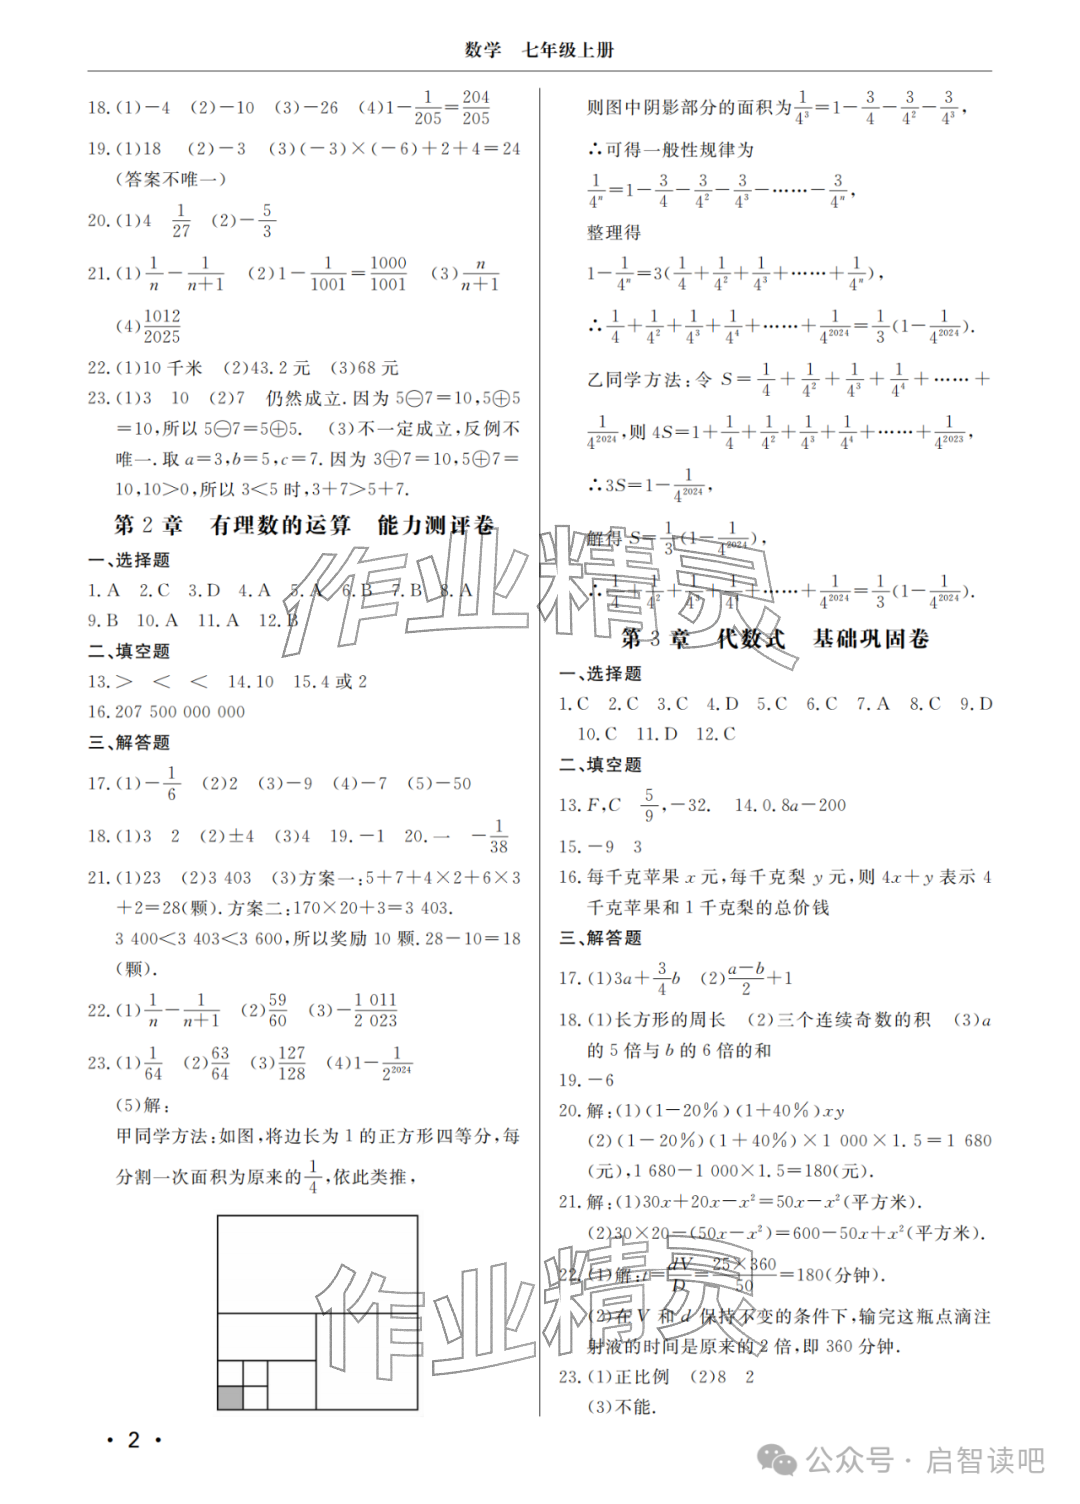 数学 七年级上册
18.(1)-4 (2)-10 (3)-26 (4)1-1/205=204/205
19.(1)18 (2)-3 (3)(-3)×(-6)+2+4=24
(答案不唯一)
20.(1)4 1/27 (2)-5/3
21.(1)1/n-1/(n+1) (2)1-1/1001=1000/1001 (3)n/(n+1)
(4)1012/2025
22.(1)10千米 (2)43.2元 (3)68元
23.(1)3 10 (2)7 仍然成立.因为5⊖7=10,5⊕5
=10,所以5⊖7=5⊕5. (3)不一定成立,反例不
唯一.取a=3,b=5,c=7.因为3⊕7=10,5⊕7=
10,10>0,所以3<5时,3+7>5+7.
第2章 有理数的运算 能力测评卷
一、选择题
1.A 2.C 3.D 4.A 5.A 6.B 7.B 8.A
9.B 10.A 11.A 12.B
二、填空题
13.> < < 14.10 15.4或2
16.207 500 000 000
三、解答题
17.(1)-1/6 (2)2 (3)-9 (4)-7 (5)-50
18.(1)3 2 (2)±4 (3)4 19.-1 20.一 -1/38
21.(1)23 (2)3 403 (3)方案一:5+7+4×2+6×3
+2=28(颗).方案二:170×20+3=3 403.
3 400<3 403<3 600,所以奖励10颗.28-10=18
(颗).
22.(1)1/n-1/(n+1) (2)59/60 (3)-1 011/2 023
23.(1)1/64 (2)63/64 (3)127/128 (4)1-1/2²⁰²⁴
(5)解:
甲同学方法:如图,将边长为1的正方形四等分,每
分割一次面积为原来的1/4,依此类推,
则图中阴影部分的面积为1/4³=1-3/4-3/4²-3/4³,
∴可得一般性规律为
1/4ⁿ=1-3/4-3/4²-3/4³-……-3/4ⁿ,
整理得
1-1/4ⁿ=3(1/4+1/4²+1/4³+……+1/4ⁿ),
∴1/4+1/4²+1/4³+1/4⁴+……+1/4²⁰²⁴=1/3(1-1/4²⁰²⁴).
乙同学方法:令S=1/4+1/4²+1/4³+1/4⁴+……+
1/4²⁰²⁴,则4S=1+1/4+1/4²+1/4³+1/4⁴+……+1/4²⁰²³,
∴3S=1-1/4²⁰²⁴,
解得S=1/3(1-1/4²⁰²⁴),
∴1/4+1/4²+1/4³+1/4⁴+……+1/4²⁰²⁴=1/3(1-1/4²⁰²⁴).
第3章 代数式 基础巩固卷
一、选择题
1.C 2.C 3.C 4.D 5.C 6.C 7.A 8.C 9.D
10.C 11.D 12.C
二、填空题
13.F,C 5/9,-32. 14.0.8a-200
15.-9 3
16.每千克苹果x元,每千克梨y元,则4x+y表示4
千克苹果和1千克梨的总价钱
三、解答题
17.(1)3a+3/4b (2)(a-b)/2+1
18.(1)长方形的周长 (2)三个连续奇数的积 (3)a
的5倍与b的6倍的和
19.-6
20.解:(1)(1-20%)(1+40%)xy
(2)(1-20%)(1+40%)×1 000×1.5=1 680
(元),1 680-1 000×1.5=180(元).
21.解:(1)30x+20x-x²=50x-x²(平方米).
(2)30×20-(50x-x²)=600-50x+x²(平方米).
22.(1)解:t=dV/D=25×360/50=180(分钟).
(2)在V和d保持不变的条件下,输完这瓶点滴注
射液的时间是原来的2倍,即360分钟.
23.(1)正比例 (2)8 2
(3)不能.
作业精灵
作业精灵
·2·
公众号·启智读吧